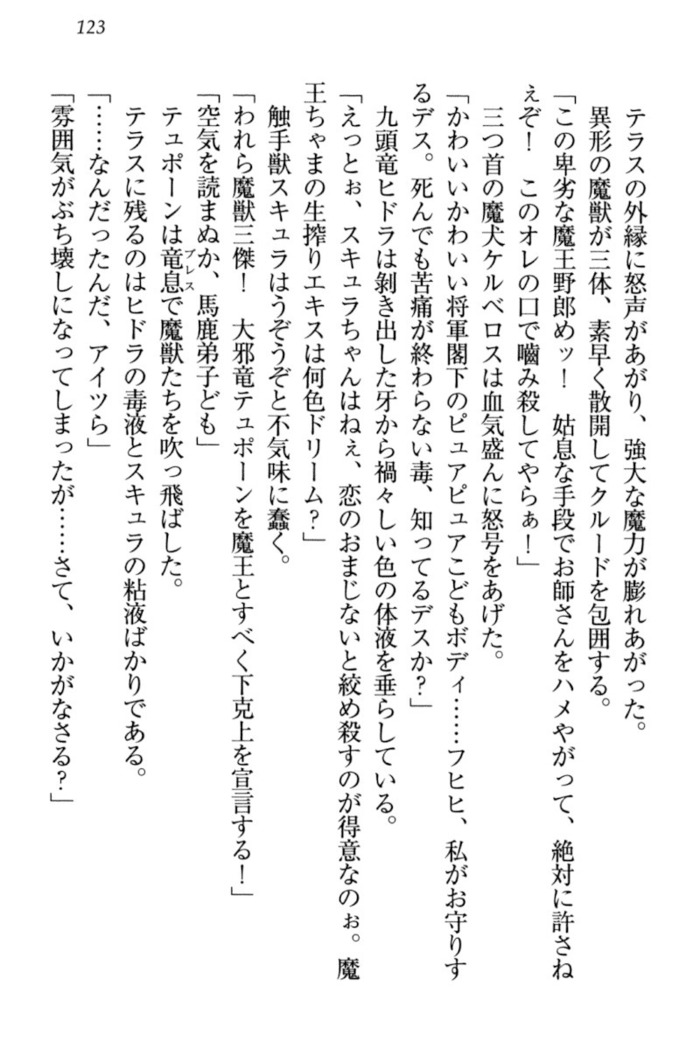 123
テラスの外縁に怒声があがり、強大な魔力が膨れあがった。
異形の魔獣が三体、素早く散開してクルードを包囲する。
「この卑劣な魔王野郎めッ！　姑息な手段でお師さんをハメやがって、絶対に許さね
ぇぞ！　このオレの口で嚙み殺してやらぁ！」
三つ首の魔犬ケルベロスは血気盛んに怒号をあげた。
「かわいいかわいい将軍閣下のピュアピュアこどもボディ……フヒヒ、私がお守りす
るデス。死んでも苦痛が終わらない毒、知ってるデスか？」
九頭竜ヒドラは剝き出した牙から禍々しい色の体液を垂らしている。
「えっとぉ、スキュラちゃんはねぇ、恋のおまじないと絞め殺すのが得意なのぉ。魔
王ちゃまの生搾りエキスは何色ドリーム？」
触手獣スキュラはうぞうぞと不気味に蠢く。
「われら魔獣三傑！　大邪竜テュポーンを魔王とすべく下克上を宣言する！」
「空気を読まぬか、馬鹿弟子ども」
テュポーンは竜息ブレスで魔獣たちを吹っ飛ばした。
テラスに残るのはヒドラの毒液とスキュラの粘液ばかりである。
「……なんだったんだ、アイツら」
「雰囲気がぶち壊しになってしまったが……さて、いかがなさる？」